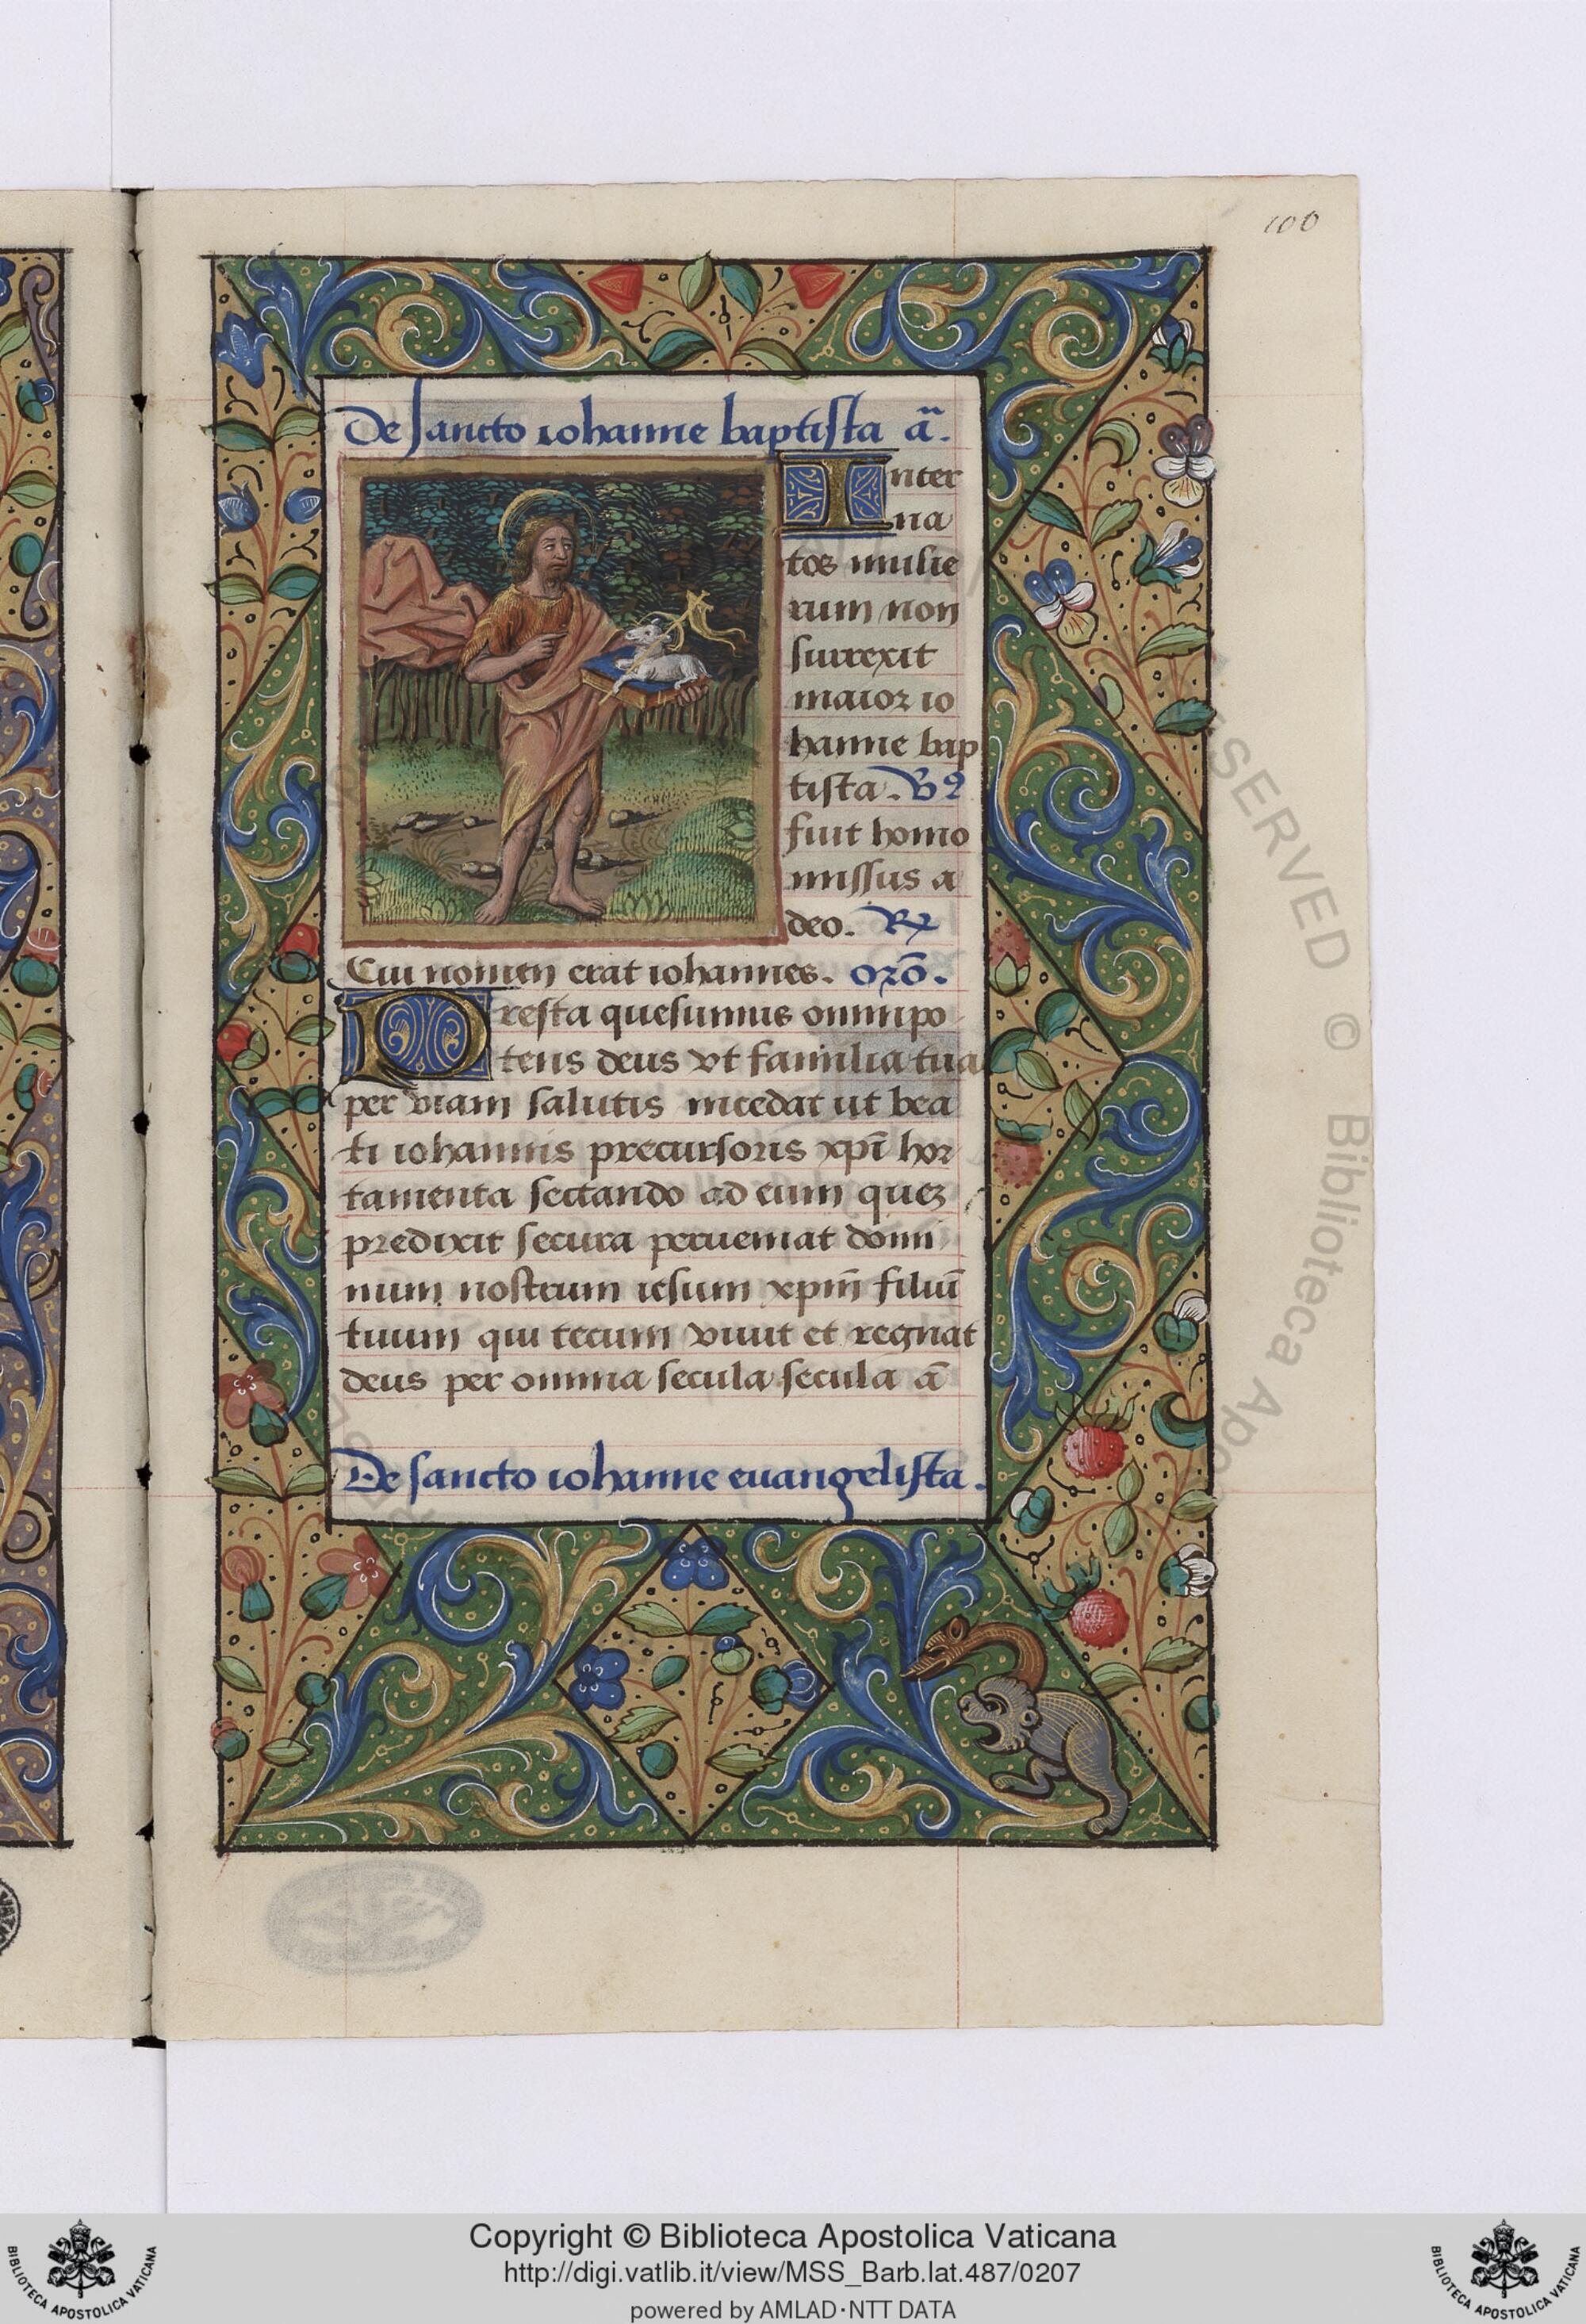 100
De sancto iohanne baptista ã.
Inter
na
tos mulie
rum non
surrexit
maior io
hanne bap
tista. V9
fuit homo
missus a
deo. R
Cui nomen erat iohannes. orõ.
Presta quesumus omnipo
tens deus vt familia tua
per viam salutis incedat ut bea
ti iohannis precursoris xpī hor
tamenta sectando ad eum quez
predixit secura perueniat domi
num nostrum iesum xpm̄ filiū
tuum qui tecum viuit et regnat
deus per omnia secula seculā ã
De sancto iohanne euangelista.
SERVED © Biblioteca Apo
Copyright © Biblioteca Apostolica Vaticana
http://digi.vatlib.it/view/MSS_Barb.lat.487/0207
powered by AMLAD·NTT DATA
BIBLIOTECA APOSTOLICA VATICANA
BIBLIOTECA APOSTOLICA VATICANA